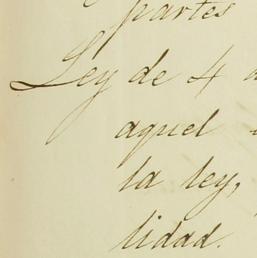 partes
Ley de 4
aquel
la ley,
lidad.